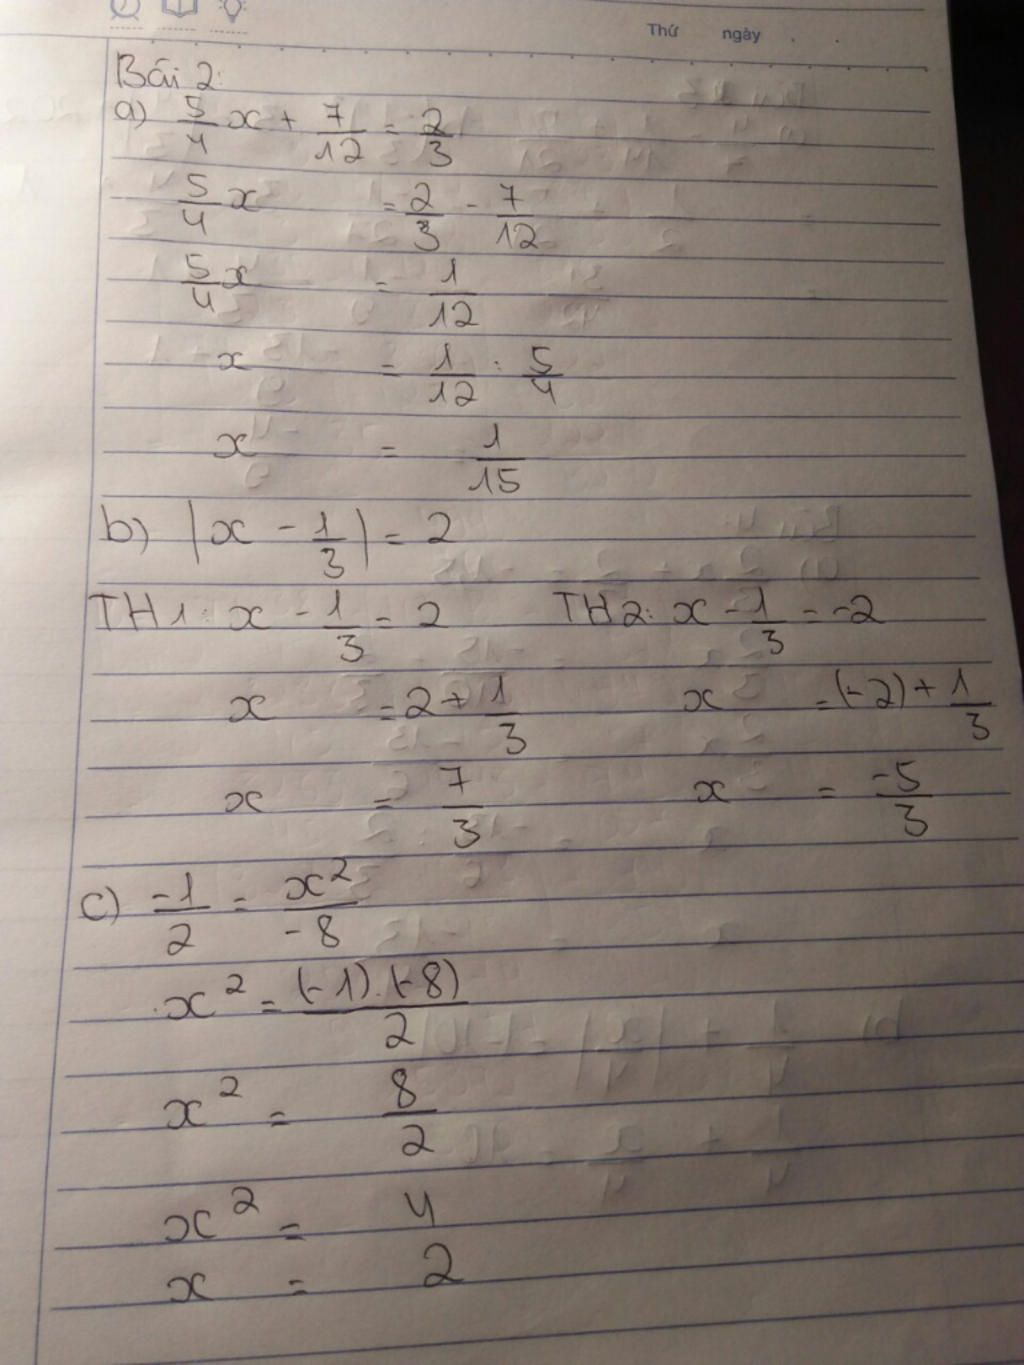 Thứ ngày
Bài 2:
a) 5/4 x + 7/12 = 2/3
5/4 x = 2/3 - 7/12
5/4 x = 1/12
x = 1/12 : 5/4
x = 1/15
b) |x - 1/3| = 2
TH1: x - 1/3 = 2 TH2: x - 1/3 = -2
x = 2 + 1/3 x = (-2) + 1/3
x = 7/3 x = -5/3
c) -1/2 = x²/-8
x² = (-1).(-8)/2
x² = 8/2
x² = 4
x = 2